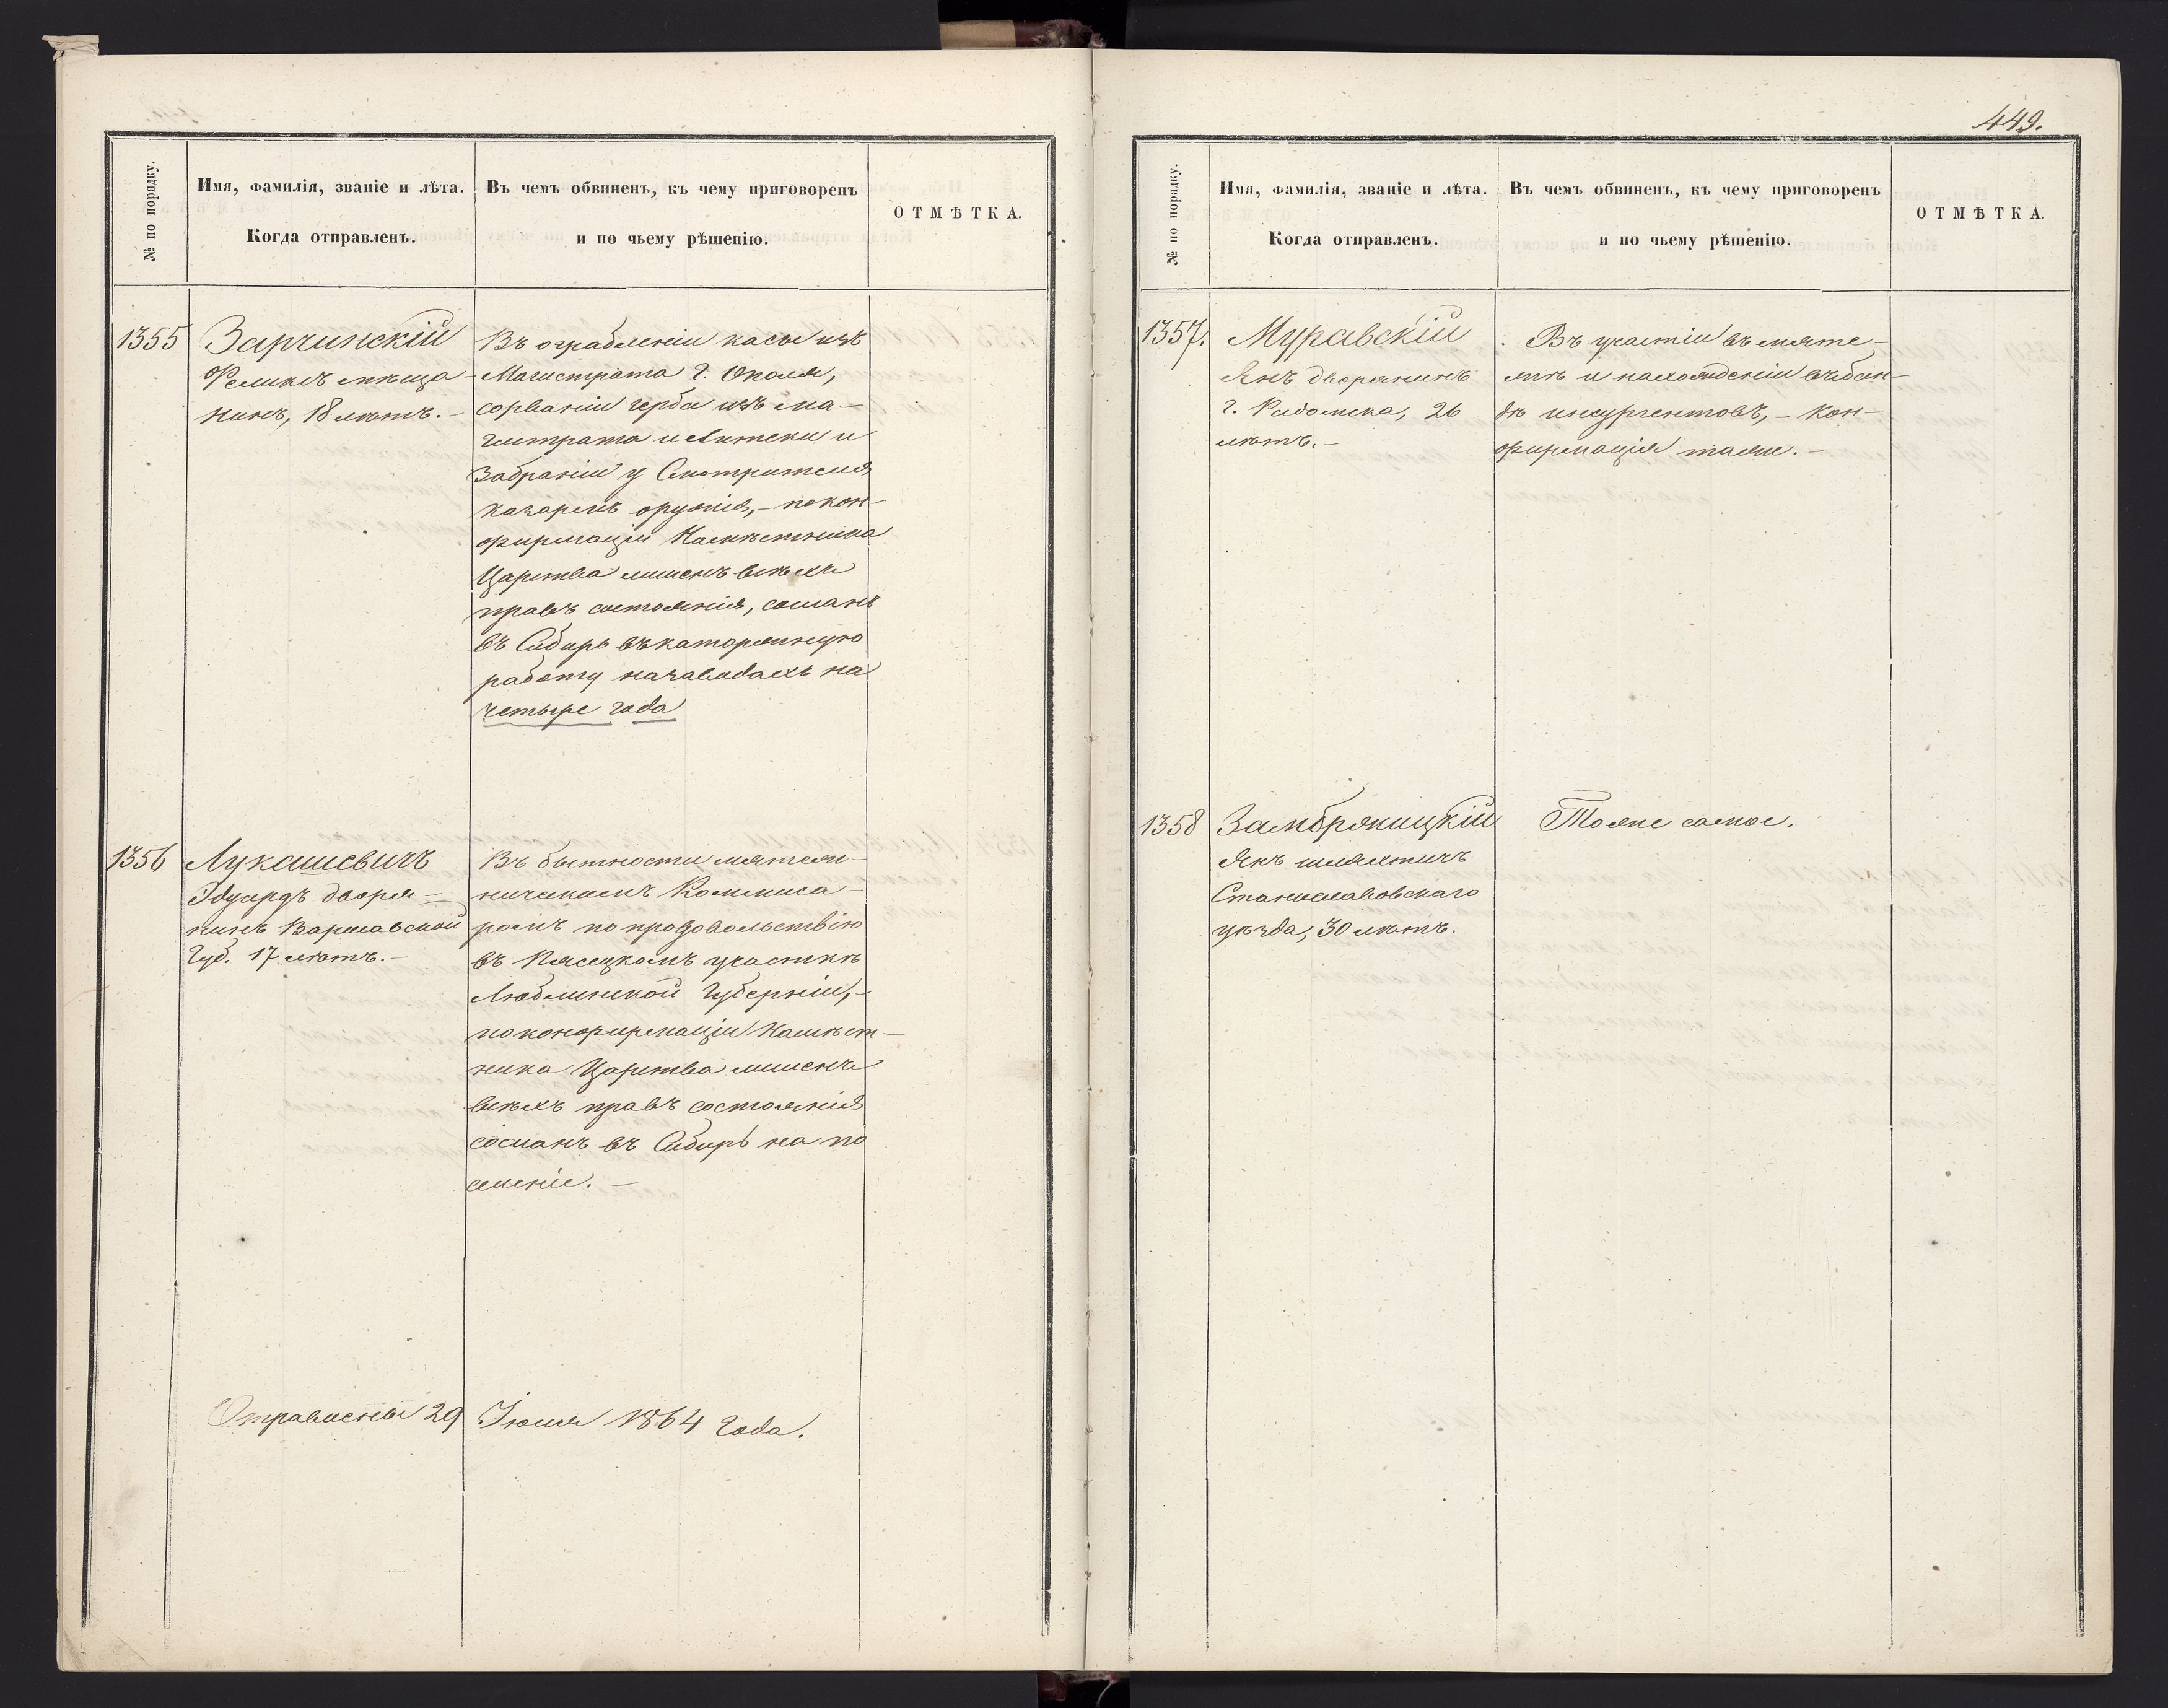 № по порядку.
Имя, фамилія, званіе и лѣта.
Когда отправленъ.
Въ чемъ обвиненъ, къ чему приговоренъ
и по чьему рѣшенію.
ОТМѢТКА.
1355
Зарчинскій
Феликсъ мѣща-
нинъ, 18 лѣтъ. -
Въ ограбленіи касы изъ
Магистрата г. Ополя,
сорваніи герба изъ ма-
гистрата и Аптеки и
забраніи у Смотрителя
казармъ оружія, - по кон-
фирмаціи Намѣстника
Царства лишенъ всѣхъ
правъ состоянія, сосланъ
въ Сибирь въ каторжную
работу на заводахъ на
четыре года
1356
Лукашевичъ
Эдуардъ дворя-
нинъ Варшавской
Губ. 17 лѣтъ. -
Въ бытности мятеж-
ническимъ Коммиса-
ромъ по продовольствію
въ Пясецкомъ участкѣ
Люблинской Губерніи, -
по конфирмаціи Намѣст-
ника Царства лишенъ
всѣхъ правъ состоянія
сосланъ въ Сибирь на по
селеніе. -
Отправлены 29 Іюля 1864 года.
449.
№ по порядку.
Имя, фамилія, званіе и лѣта.
Когда отправленъ.
Въ чемъ обвиненъ, къ чему приговоренъ
и по чьему рѣшенію.
ОТМѢТКА.
1357.
Муравскій
Янъ дворянинъ
г. Радомска, 26
лѣтъ. -
Въ участіи въ мяте-
жѣ и нахожденіи въ бан-
дѣ инсургентовъ, - кон-
фирмація таже. -
1358
Замбржицкій
Янъ шляхтичъ
Станиславовскаго
уѣзда, 30 лѣтъ.
Тоже самое.